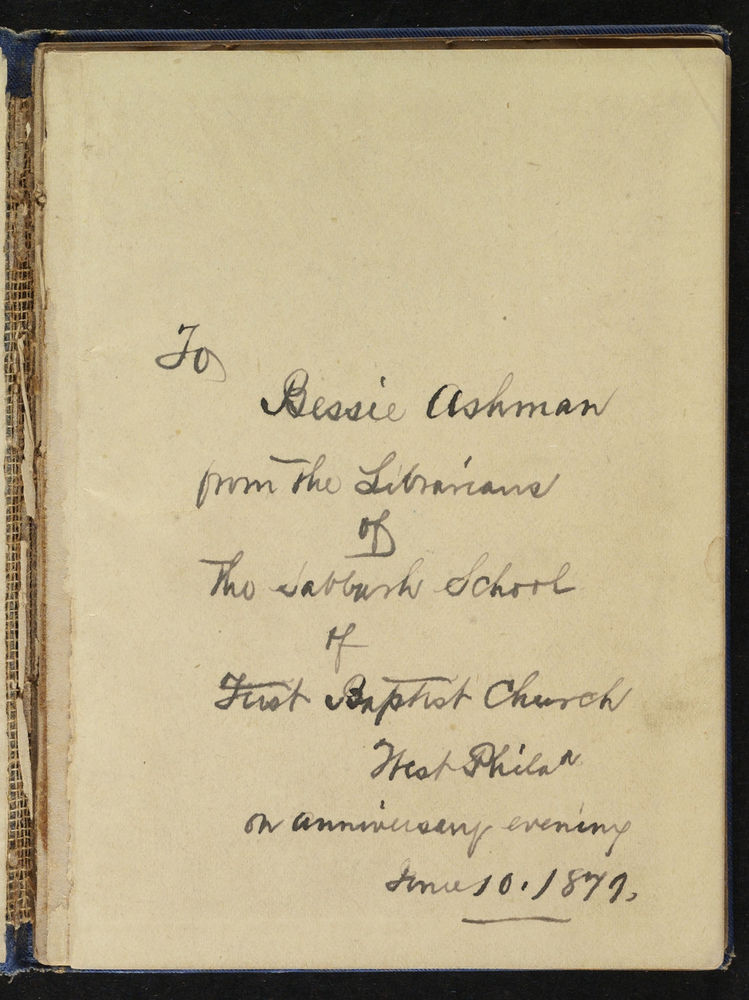 To
Bessie Ashman
from the Librarians
of
The Sabbath School
of
First Baptist Church
West Phila
on anniversary evening
June 10. 1879.